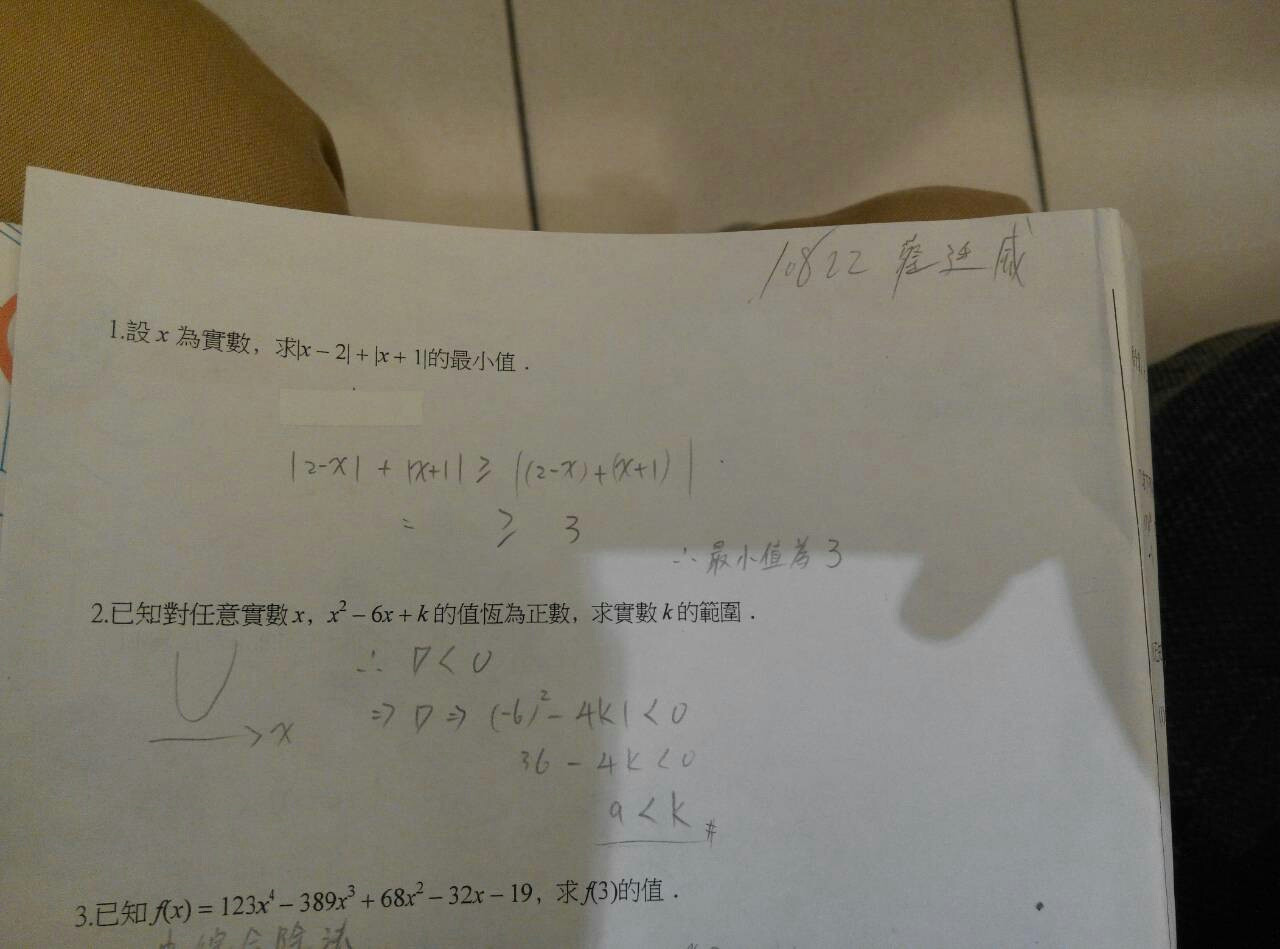 10822
1.設 x 為實數，求|x − 2| + |x + 1|的最小值．
|2-x| + |x+1| ≥ |(2-x)+(x+1)|
= ≥ 3
∴ 最小值為 3
2.已知對任意實數 x，x² − 6x + k 的值恆為正數，求實數 k 的範圍．
∴ D < 0
x
⇒ D ⇒ (-6)² - 4k1 < 0
36 - 4k < 0
9 < k #
3.已知 f(x) = 123x⁴ − 389x³ + 68x² − 32x − 19，求 f(3)的值．